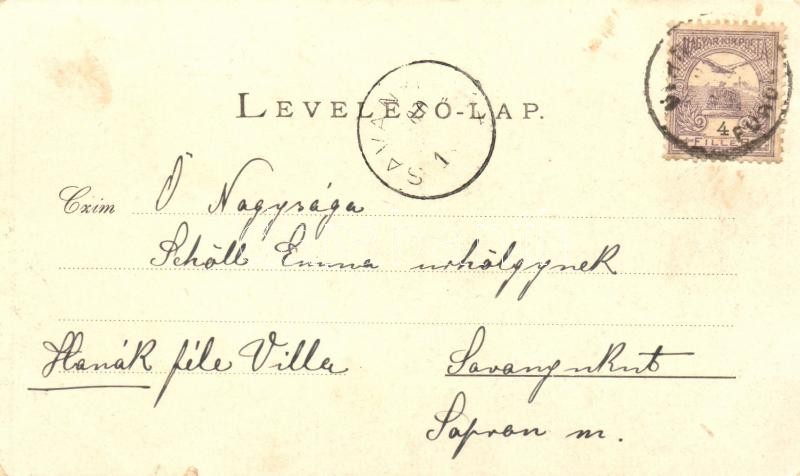 LEVELEZŐ-LAP.
MAGYAR KIR. POSTA
4
FILLÉR
SAVAN
1
FÜRD
Czim Ő Nagysága
Schöll Emma urhölgynek
Hanák féle Villa Savanyukut
Sopron m.